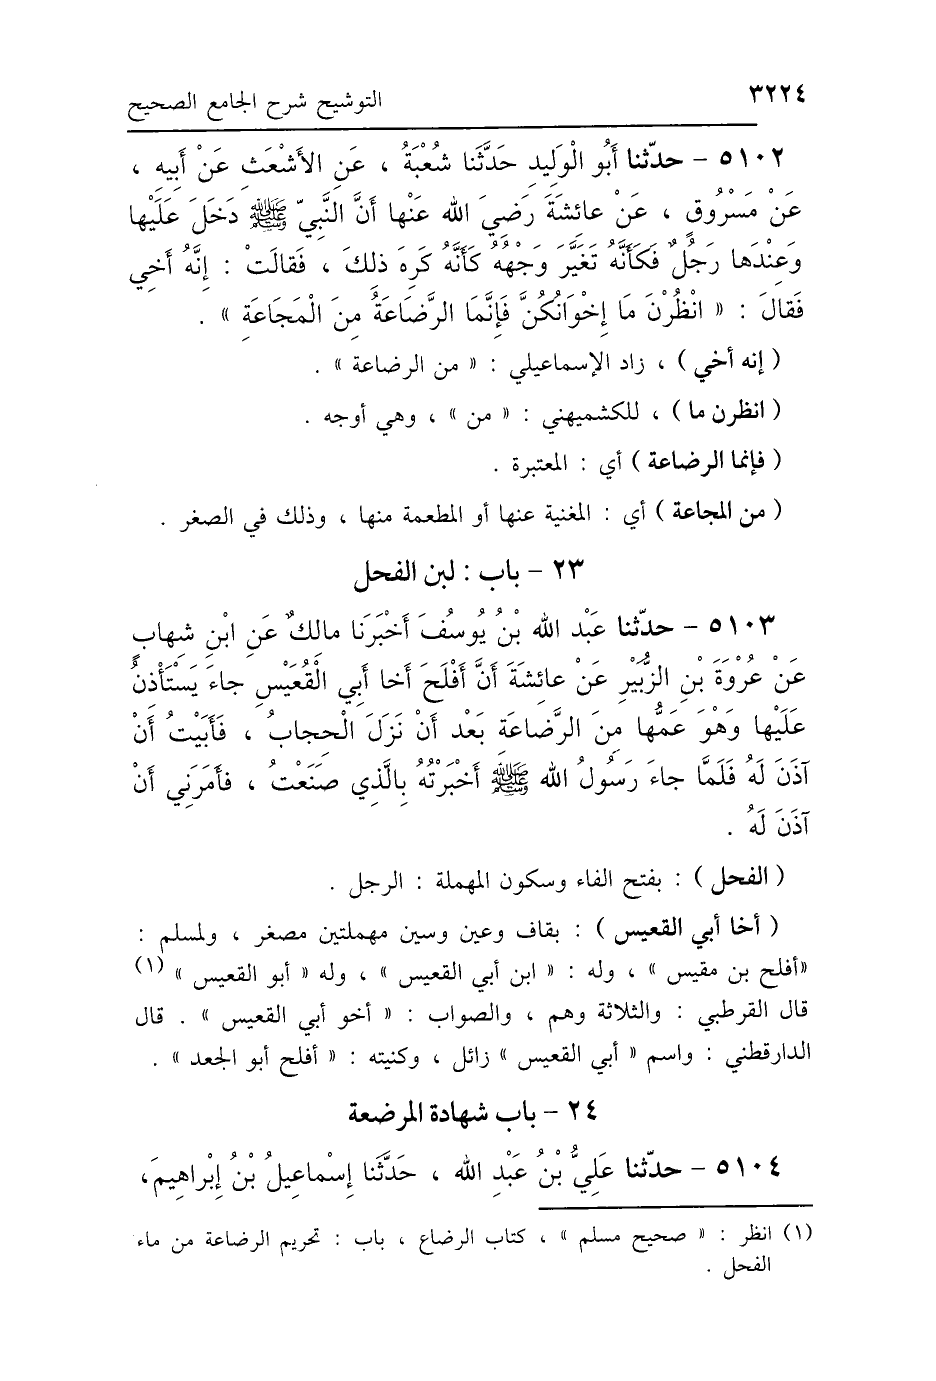 ٣٢٢٤ التوشيح شرح الجامع الصحيح
٥١٠٢ - حدّثنا أَبُو الْوَلِيدِ حَدَّثَنا شُعْبَةُ ، عَنِ الأَشْعَثِ عَنْ أَبِيه ،
عَنْ مَسْرُوقٍ ، عَنْ عائِشَةَ رَضِيَ الله عَنْها أَنَّ النَّبِيّ ﷺ دَخَلَ عَلَيْها
وَعِنْدَها رَجُلٌ فَكَأَنَّهُ تَغَيَّرَ وَجْهُهُ كَأَنَّهُ كَرِهَ ذلِكَ ، فَقالَتْ : إِنَّهُ أَخِي
فَقالَ : « انْظُرْنَ مَا إِخْوَانُكُنَّ فَإِنَّمَا الرَّضَاعَةُ مِنَ الْمَجَاعَةِ » .
( إنه أخي ) ، زاد الإسماعيلي : « من الرضاعة » .
( انظرن ما ) ، للكشميهني : « من » ، وهي أوجه .
( فإنما الرضاعة ) أي : المعتبرة .
( من المجاعة ) أي : المغنية عنها أو المطعمة منها ، وذلك في الصغر .
٢٣ - باب : لبن الفحل
٥١٠٣ - حدّثنا عَبْد الله بْنُ يُوسُفَ أَخْبَرَنَا مالِكٌ عَنِ ابْنِ شِهابٍ
عَنْ عُرْوَةَ بْنِ الزُّبَيْرِ عَنْ عائِشَةَ أَنَّ أَفْلَحَ أَخا أَبِي الْقُعَيْسِ جاءَ يَسْتَأْذِنُ
عَلَيْها وَهْوَ عَمُّها مِنَ الرَّضاعَةِ بَعْد أَنْ نَزَلَ الْحِجابُ ، فَأَبَيْتُ أَنْ
آذَنَ لَهُ فَلَمَّا جاءَ رَسُولُ الله ﷺ أَخْبَرْتُهُ بِالَّذِي صَنَعْتُ ، فأَمَرَنِي أَنْ
آذَنَ لَهُ .
( الفحل ) : بفتح الفاء وسكون المهملة : الرجل .
( أخا أبي القعيس ) : بقاف وعين وسين مهملتين مصغر ، ولمسلم :
«أفلح بن مقيس » ، وله : « ابن أبي القعيس » ، وله « أبو القعيس » (١)
قال القرطبي : والثلاثة وهم ، والصواب : « أخو أبي القعيس » . قال
الدارقطني : واسم « أبي القعيس » زائل ، وكنيته : « أفلح أبو الجعد » .
٢٤ - باب شهادة المرضعة
٥١٠٤ - حدّثنا عَلِيُّ بْنُ عَبْدِ الله ، حَدَّثَنا إِسْماعِيلُ بْنُ إِبْراهِيمَ،
(١) انظر : « صحيح مسلم » ، كتاب الرضاع ، باب : تحريم الرضاعة من ماء
الفحل .